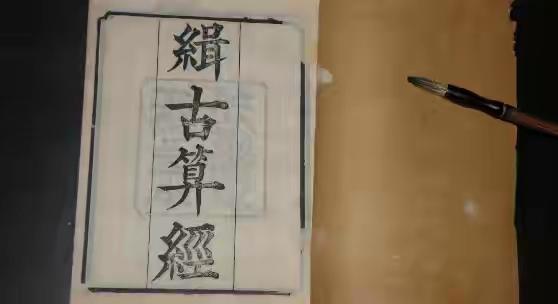 緝古算經